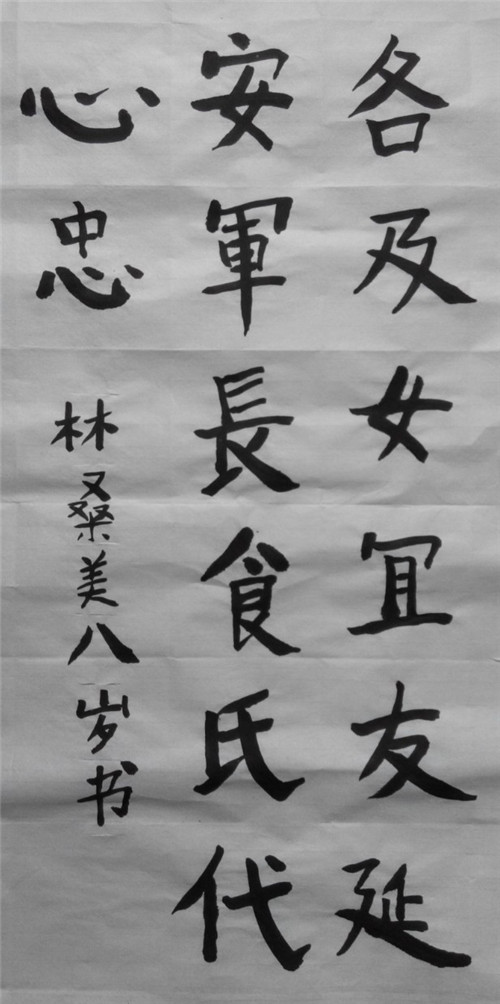 各及女冝友延
安軍長食氏代
心忠
林桑美八岁书